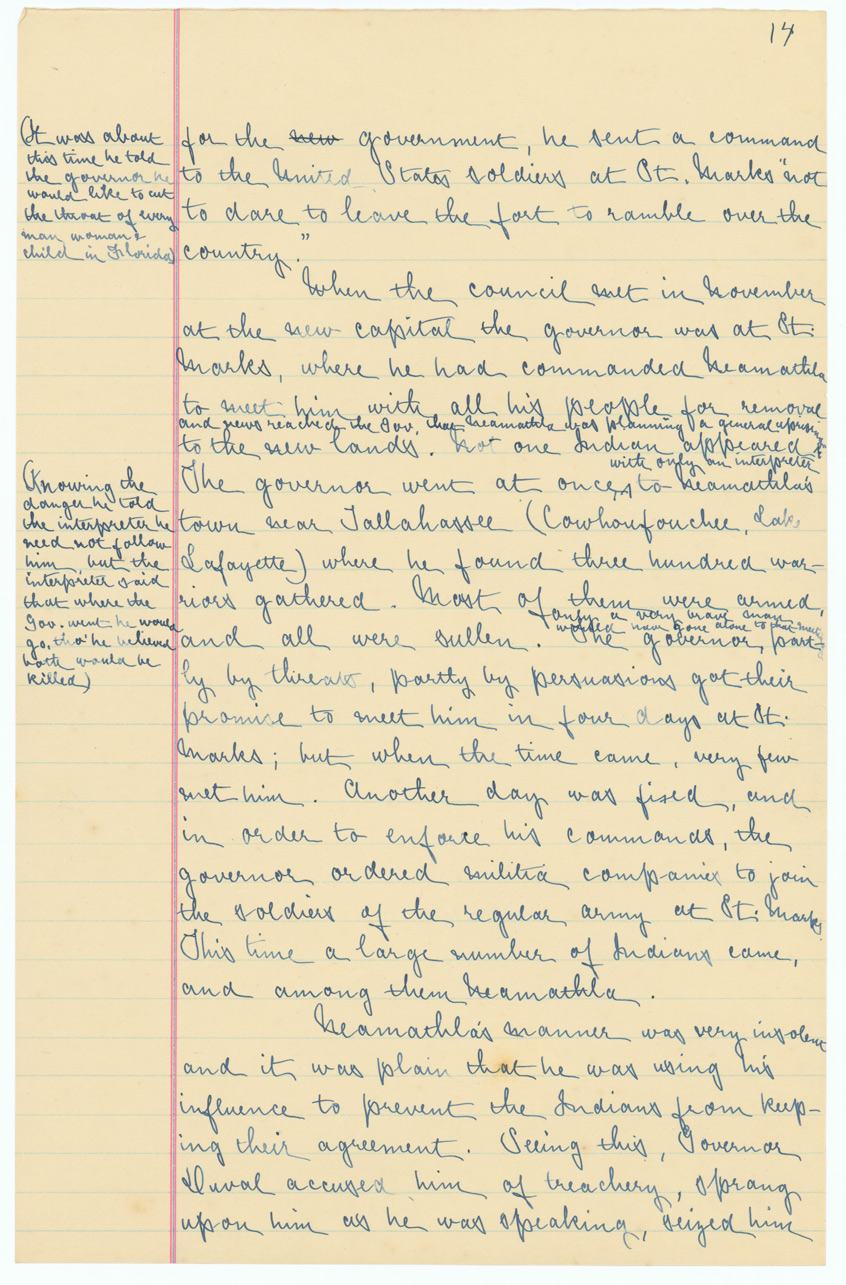 14
(It was about
this time he told
the governor he
would like to cut
the throat of every
man, woman &
child in Florida)
for the new government, he sent a command
to the United States soldiers at St. Marks "not
to dare to leave the fort to ramble over the
country."
When the council met in November
at the new capital the governor was at St.
Marks, where he had commanded Neamathla
to meet him with all his people for removal
and news reached the Gov. that Neamathla was planning a general uprising
to the new lands. Not one Indian appeared.
with only an interpreter
(Knowing the
danger he told
the interpreter he
need not follow
him, but the
interpreter said
that where the
Gov. went he would
go, tho' he believed
both would be
killed)
The governor went at once, to Neamathla's
town near Tallahassee (Cowhoufouchee, Lake
Lafayette) where he found three hundred war-
riors gathered. Most of them were armed,
only a very brave man
would have gone alone to that meeting
and all were sullen. The governor, part-
ly by threats, partly by persuasions got their
promise to meet him in four days at St.
Marks; but when the time came, very few
met him. Another day was fixed, and
in order to enforce his commands, the
governor ordered militia companies to join
the soldiers of the regular army at St. Marks.
This time a large number of Indians came,
and among them Neamathla.
Neamathla's manner was very insolent
and it was plain that he was using his
influence to prevent the Indians from keep-
ing their agreement. Seeing this, Governor
Duval accused him of treachery, sprang
upon him as he was speaking, seized him